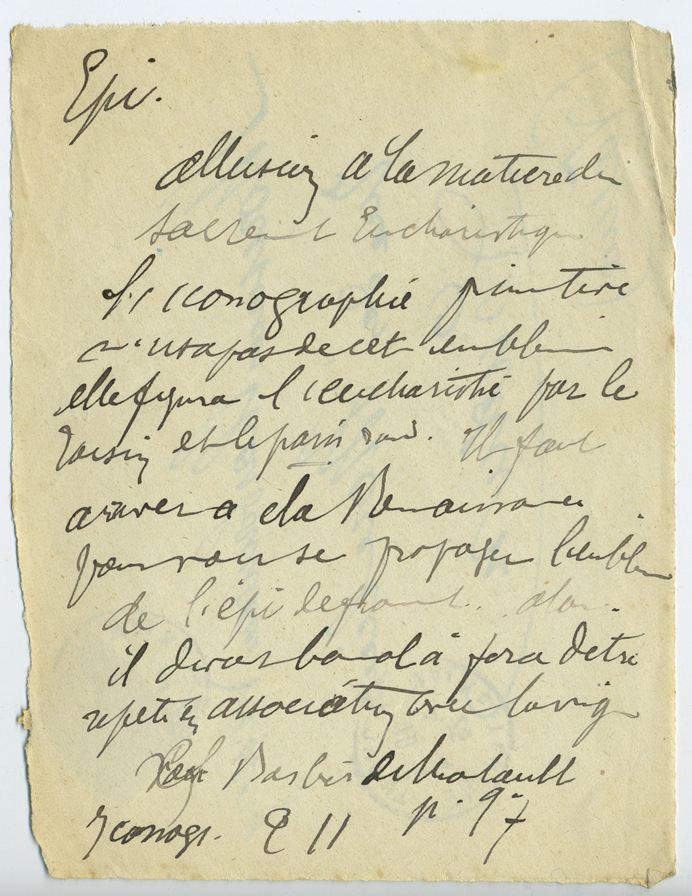 Epi.
allusion à la matière du
sacrement Eucharistique
L'iconographie primitive
n'usa pas de cet emblème
elle figura l'eucharistie par le
raisin et le pain rond. Il faut
arriver a la Renaissance
pour voir se propager l'emblème
de l'épi de froment.. alors..
il devient banal à force d'être
répété en association avec la vigne
Barbier de Montault
Iconogr. T II p. 97